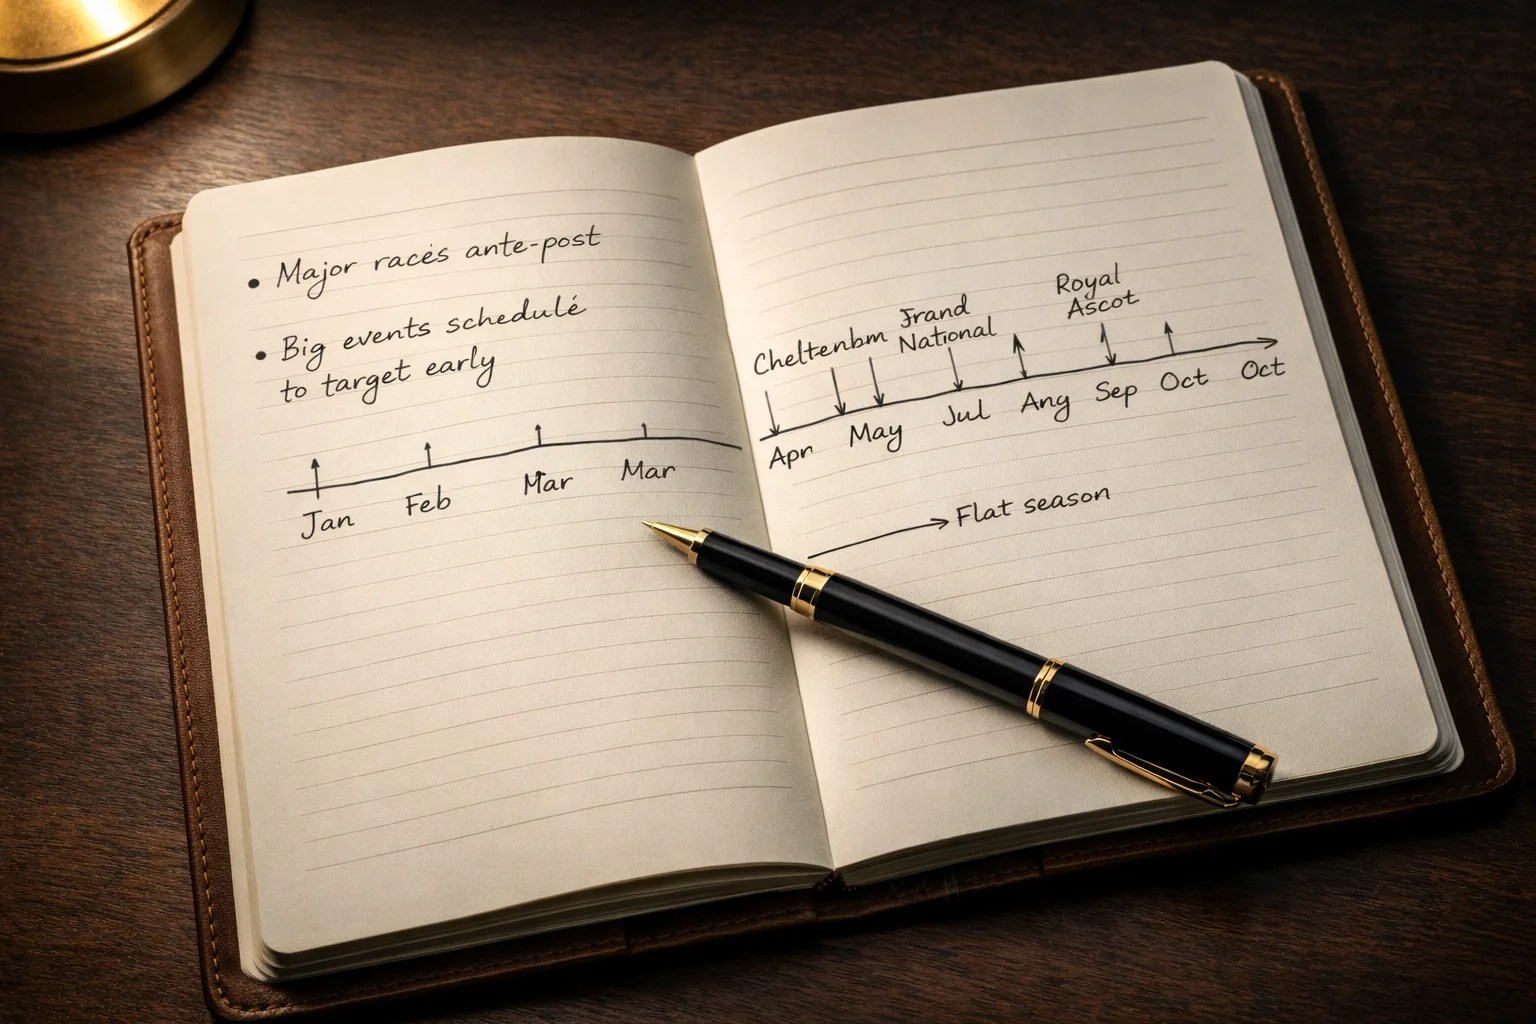 • Major racės ante-post
• Big events schedulé
to target early
Jan Feb Mar Mar
Cheltenbm Frand
National
Royal
Ascot
Apr May Jul Ang Sep Oct Oct
Flat season